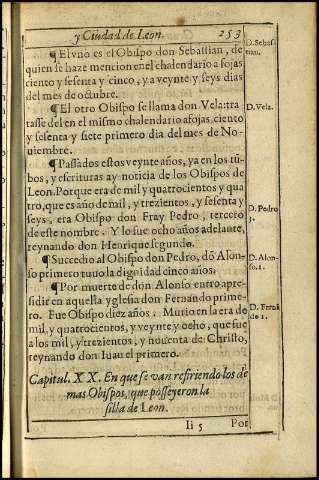 y Ciudad de Leon. 253
¶ El vno es el Obispo don Sebastian, de
quien se haze mencion en el chalendario a fojas
ciento y sesenta y cinco, y a veynte y seys dias
del mes de octubre.
D. Sebas-
tian.
¶ El otro Obispo se llama don Vela: tra
tasse del en el mismo chalendario a fojas, ciento
y sesenta y siete primero dia del mes de No-
uiembre.
D. Vela.
¶ Passados estos veynte años, ya en los tū-
bos, y escrituras ay noticia de los Obispos de
Leon. Porque era de mil y quatrocientos y qua
tro, que es año de mil, y trezientos, y sesenta y
seys, era Obispo don Fray Pedro, tercero
de este nombre. Y lo fue ocho años adelante,
reynando don Henrique segundo.
D. Pedro
3.
¶ Succedio al Obispo don Pedro, dō Alon-
so primero tuuo la dignidad cinco años.
D. Alon-
so. 1.
¶ Por muerte de don Alonso entro a pre-
sidir en aquella yglesia don Fernando prime-
ro. Fue Obispo diez años. Murio en la era de
mil, y quatrocientos, y veynte y ocho, que fue
a los mil, y trezientos, y nouenta de Christo,
reynando don Iuan el primero.
D. Fernā
do 1.
Capitul. XX. En que se van refiriendo los de
mas Obispos, que posseyeron la
silla de Leon.
Ii 5 Por